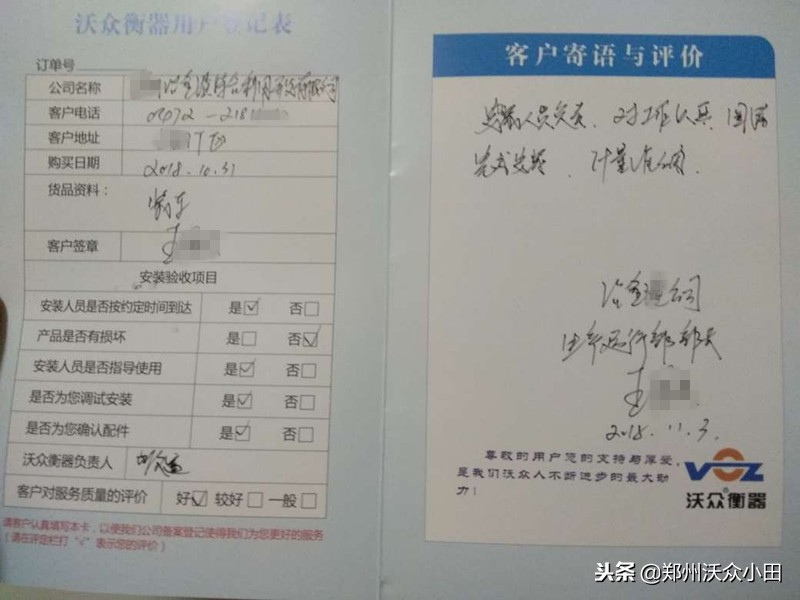 沃众衡器用户登记表
订单号
公司名称 冶金渣综合利用开发有限公司
客户电话 0372-218
客户地址
购买日期 2018.10.31
货品资料：
客户签章 王
安装验收项目
安装人员是否按约定时间到达 是☑ 否□
产品是否有损坏 是□ 否☑
安装人员是否指导使用 是☑ 否□
是否为您调试安装 是☑ 否□
是否为您确认配件 是☑ 否□
沃众衡器负责人
客户对服务质量的评价 好☑ 较好□ 一般□
请客户认真填写本卡，以便我们公司备案登记使得我们为您更好的服务
（请在评定栏打“√”表示您的评价）
客户寄语与评价
安装人员负责、对工作认真 圆满
完成安装、计量准确.
冶金渣公司
生产运行部部长
王
2018.11.3.
尊敬的用户您的支持与厚爱，
是我们沃众人不断进步的最大动
力！
VOZ
沃众衡器
头条 @郑州沃众小田